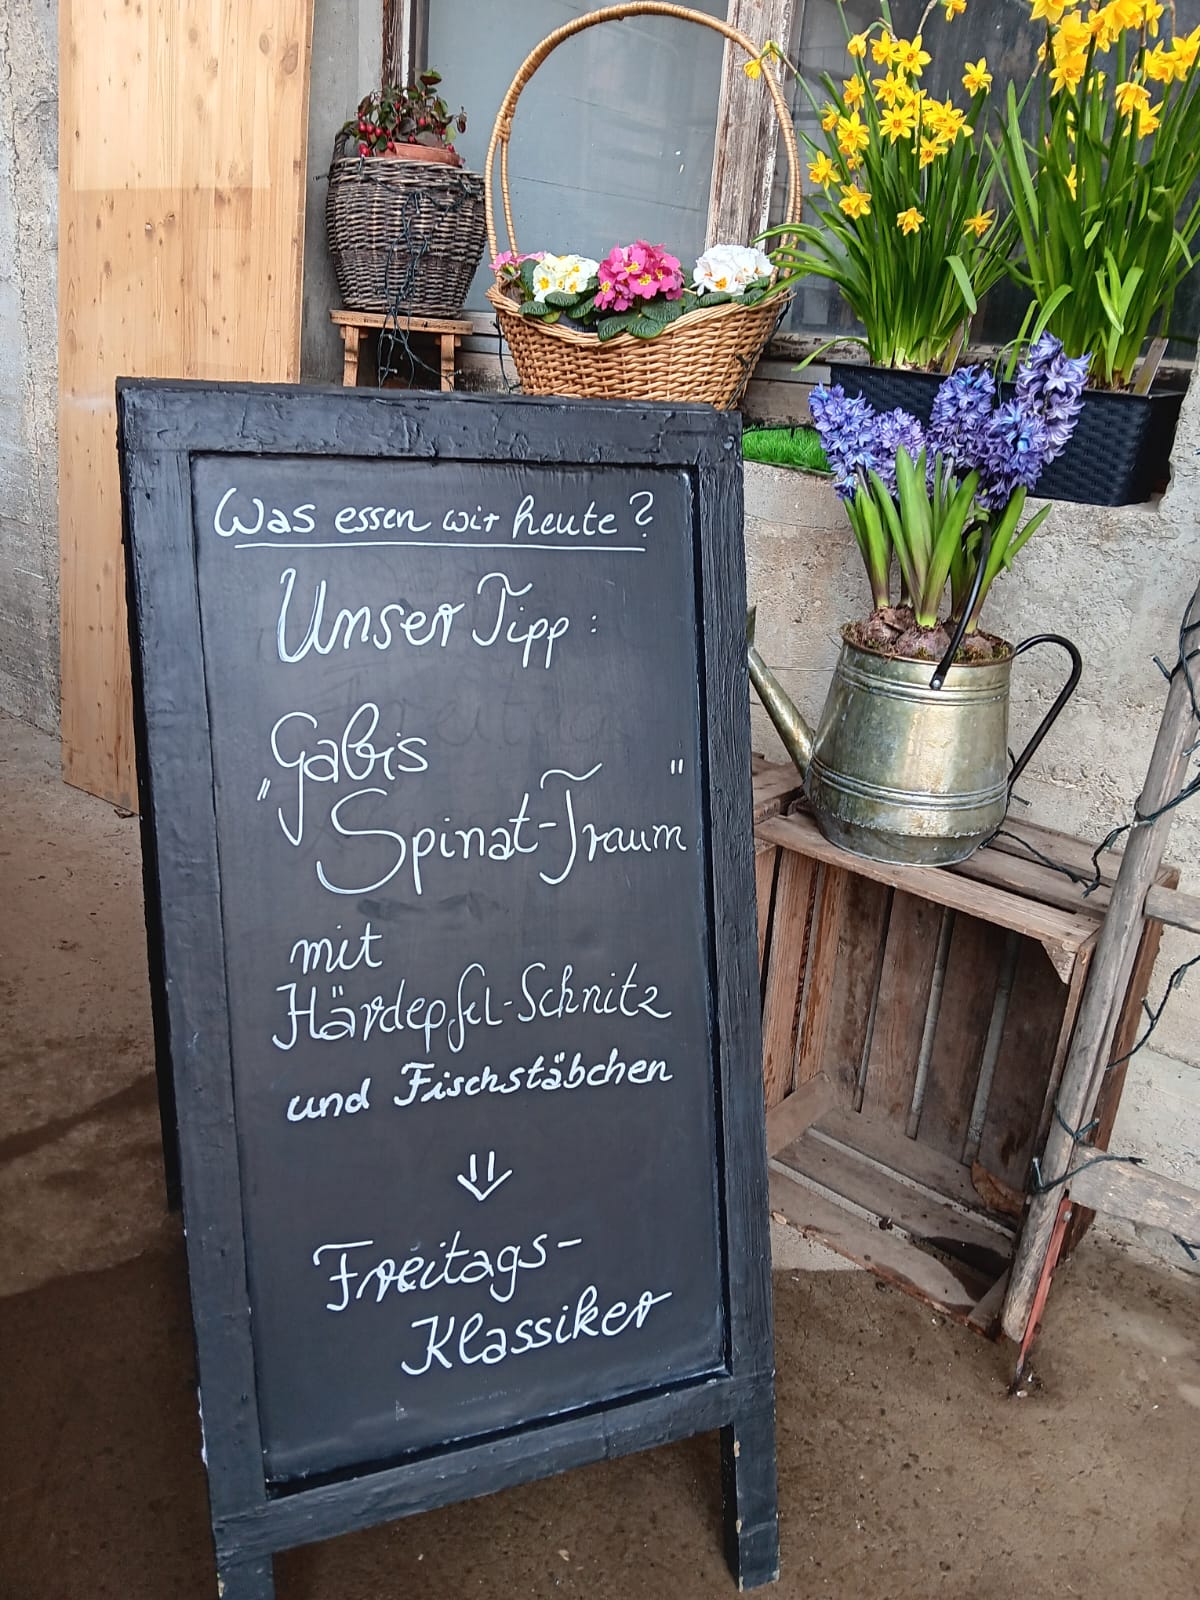 Was essen wir heute?
Unser Tipp:
„Gabis
Spinat-Traum"
mit
Härdepfel-Schnitz
und Fischstäbchen
⇓
Freitags-
Klassiker